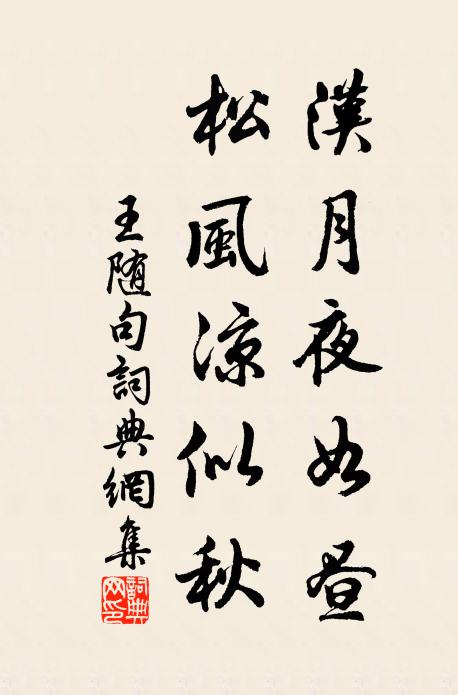 漢月夜如昼
松風涼似秋
王随句詞典網集
詞典网印